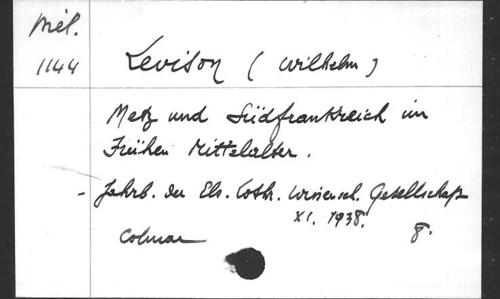 Mél.
1144
Levison (Wilhelm)
Metz und Südfrankreich im
Frühen Mittelalter.
- Jahrb. der Els. Loth. Wissensch. Gesellschaft
XI. 1938.
Colmar 8.